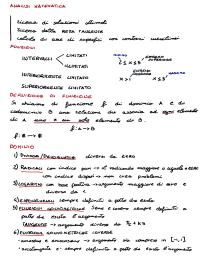 ANALISI MATEMATICA
Ricerca di soluzioni
Ricerca della RETTA TANGENTE
Calcolo di aree di superfici con contorni
FUNZIONI
INTERVALLI
LIMITATI
ILLIMITATI
INFERIORMENTE LIMITATO
SUPERIORMENTE LIMITATO
DEFINIZIONE DI FUNZIONE
Si chiama di funzione f di dominio A e di
codominio B una relazione che associa ad ogni elemento
di A uno e un solo elemento di B.
f: A → B
DOMINIO
1) diverso da zero
2) RADICALI con indice pari → il radicando maggiore o uguale a zero
con indice dispari → non crea problemi
3) LOGARITMI con base positiva → argomento maggiore di zero e
diverso da
4) ESPONENZIALI sempre definiti a patto che esista
5) FUNZIONI GONIOMETRICHE Seno e coseno sempre definiti a
patto che esista l'argomento
TANGENTE → argomento diverso da
6) FUNZIONI GONIOMETRICHE INVERSE
arcoseno e arcocoseno → argomento sia compreso in [-1,1]
arcotangente è sempre definita a patto che esista l'argomento